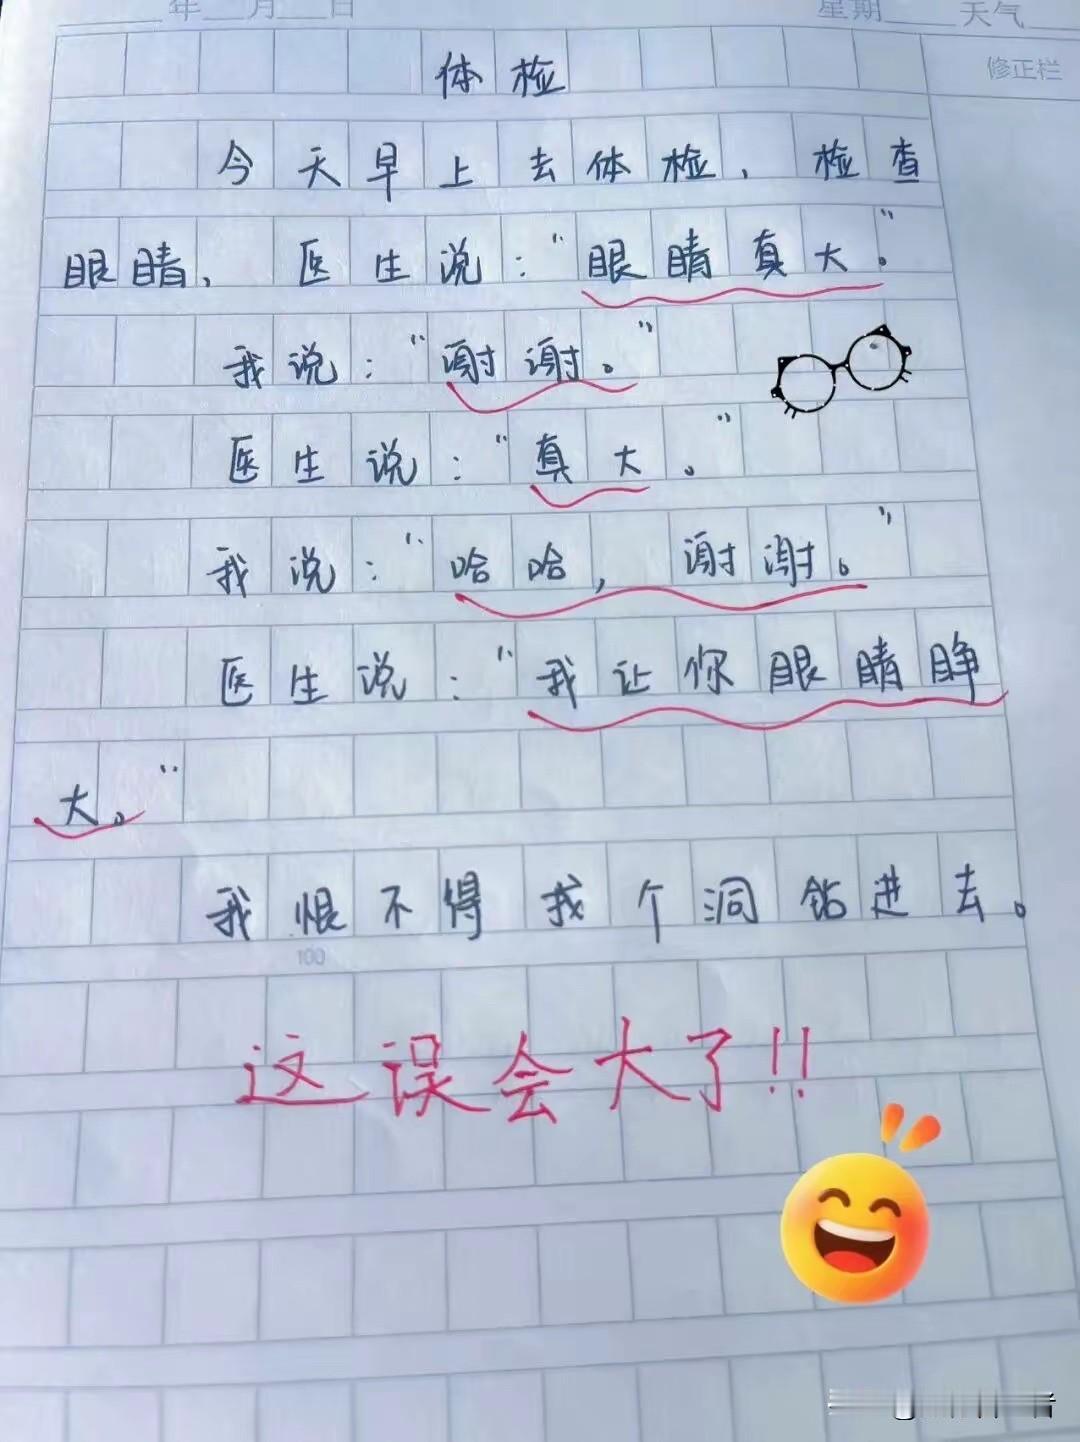 年 月 日 星期 天气
修正栏
体检
今天早上去体检，检查
眼睛，医生说：“眼睛真大。”
我说：“谢谢。”
医生说：“真大。”
我说：“哈哈，谢谢。”
医生说：“我让你眼睛睁
大。”
我恨不得找个洞钻进去。
100
这误会大了!!